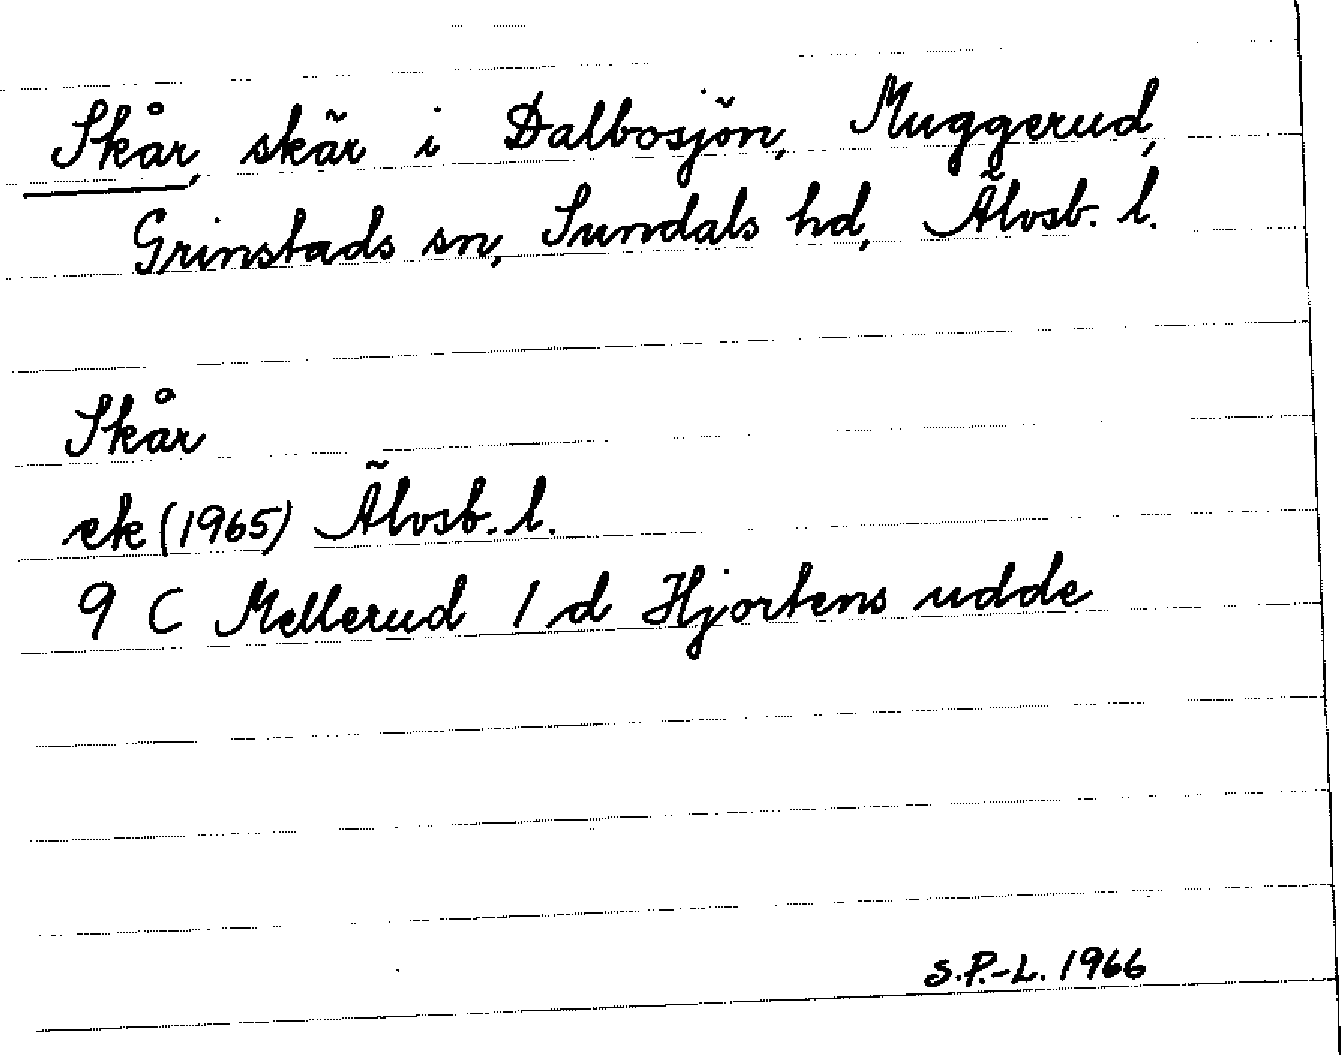 Skår, skär i Dalbosjön, Muggerud,
Grinstads sn, Sundals hd, Älvsb. l.
Skår
ek (1965) Älvsb. l.
9 C Mellerud 1 d Hjortens udde
S.P.-L. 1966